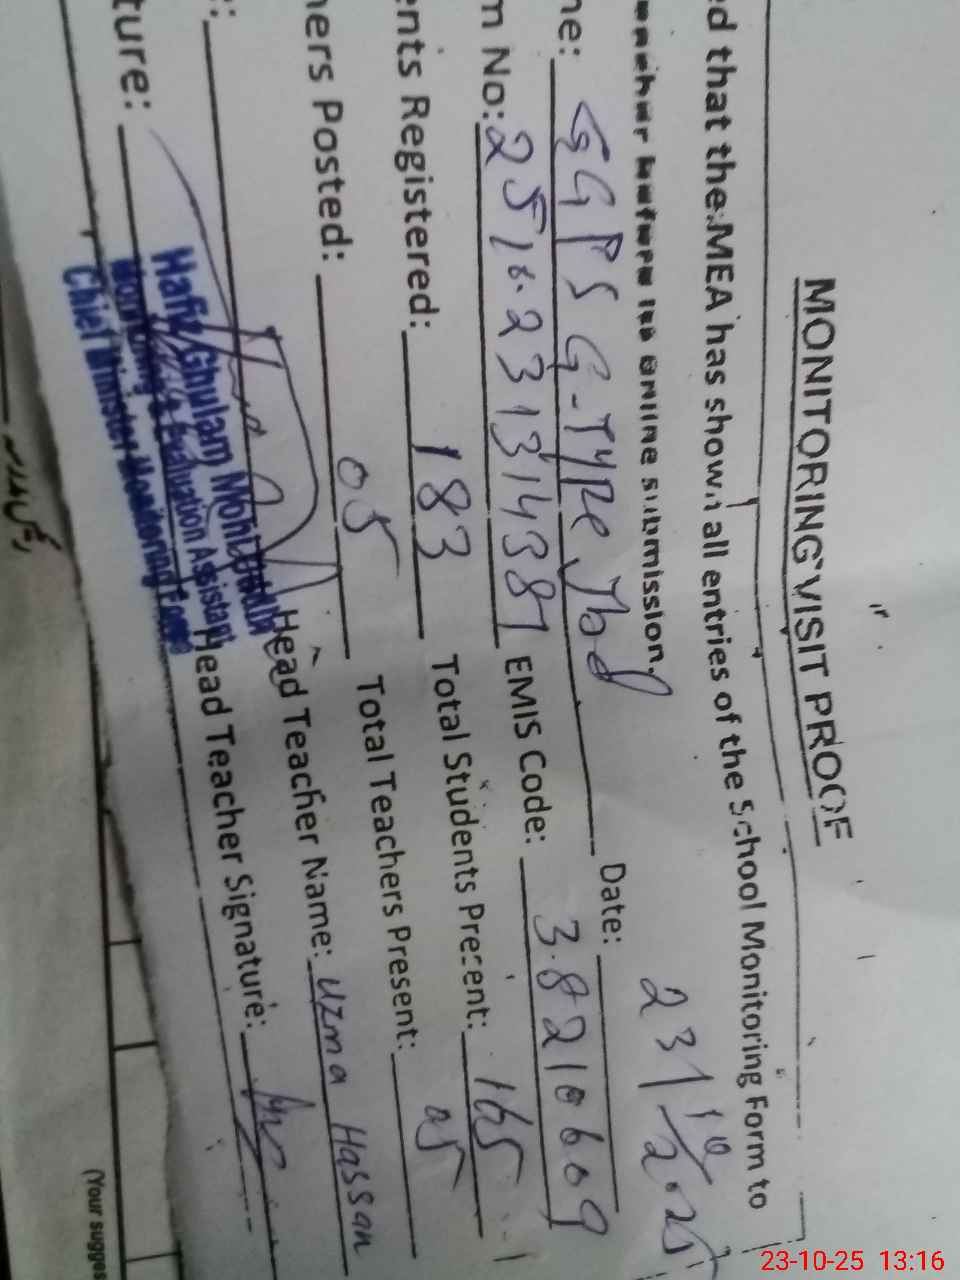 MONITORING VISIT PROOF
ed that the MEA has shown all entries of the School Monitoring Form to
before online submission.
ne: GGPS G-Type Jbd Date: 23/10/2025
m No: EMIS Code: 38210609
ents Registered: 183 Total Students Present: 165
ners Posted: 05 Total Teachers Present: 05
e: Head Teacher Name: Uzma Hassan
ture: Head Teacher Signature:
Hafiz Ghulam Mohi
Monitoring & Evaluation Assistant
Chief Minister Monitoring Force
(Your sugges
23-10-25 13:16